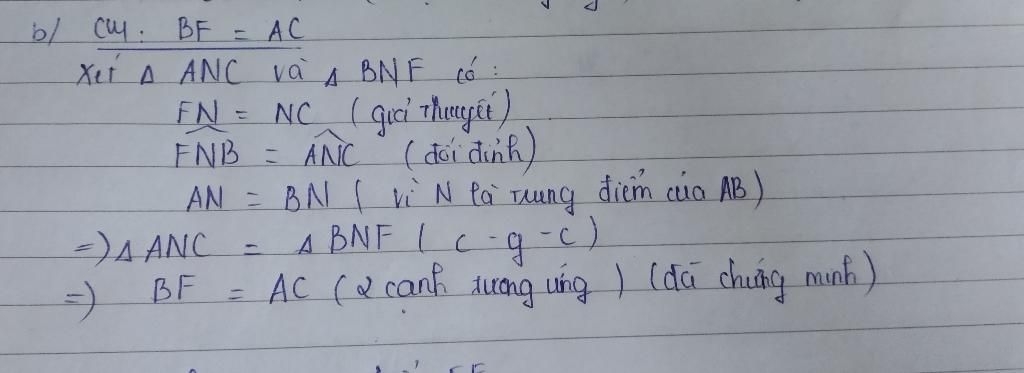 b/ CM. BF = AC
Xét Δ ANC và Δ BNF có :
FN = NC ( giả thuyết )
FNB = ANC ( đối đỉnh )
AN = BN ( vì N là trung điểm của AB )
=> Δ ANC = Δ BNF ( c - g - c )
=> BF = AC ( 2 cạnh tương ứng ) ( đã chứng minh )